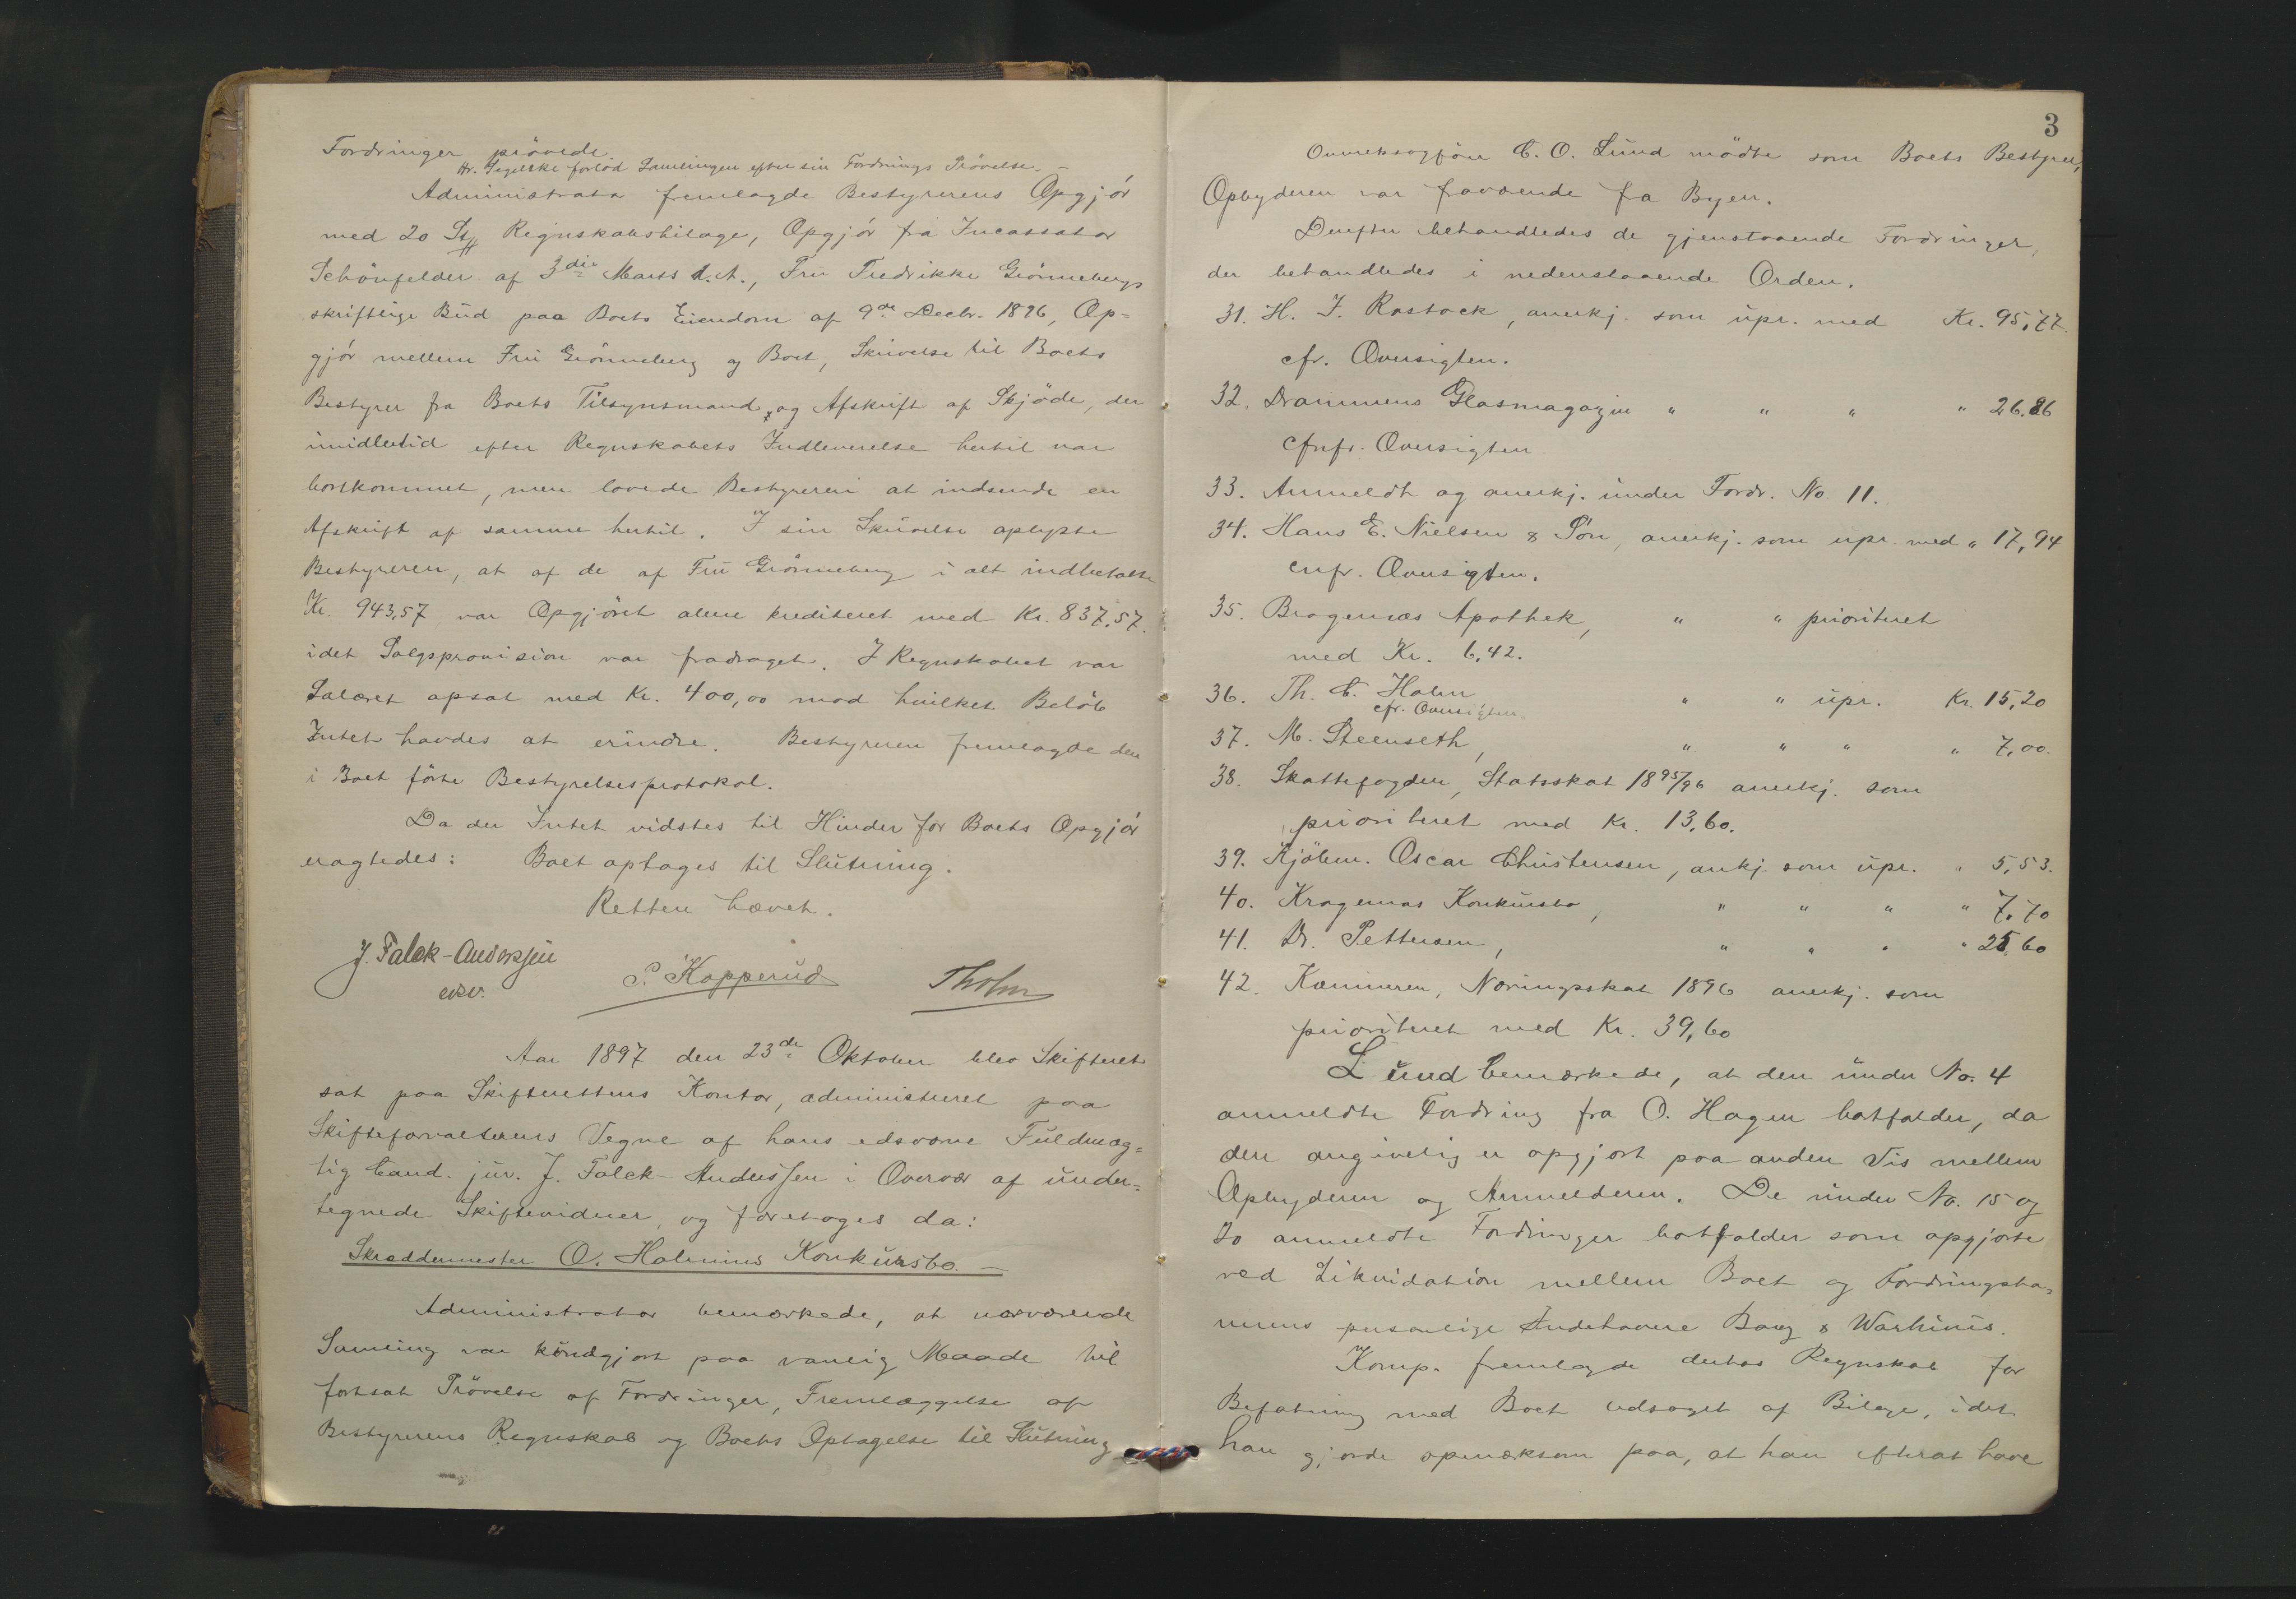 Fordringer prövede.
Hr. Segelske forlod Samlingen efter sin Fordrings Prövelse. –
Administrator fremlagde Bestyrerens Opgjör
med 20 St. Regnskabsbilage, Opgjör fra Incassator
Schönfelder af 3die Marts d.A., Fru Fredrikke Grönnebergs
skriftlige Bud paa Boets Eiendom af 9de Decbr. 1896, Op=
gjör mellem Fru Grönneberg og Boet, Skrivelse til Boets
Bestyrer fra Boets Tilsynsmand, og Afskrift af Skjöde, der
imidlertid efter Regnskabets Indleverelse hertil var
bortkommet, men lovede Bestyreren at indsende en
Afskrift af samme hertil. I sin Skrivelse oplyste
Bestyreren, at af de af Fru Grönneberg i alt indbetalte
Kr. 943,57 var Opgjöret alene krediteret med Kr. 837,57.
idet Salgsprovision var fradraget. I Regnskabet var
Salæret opsat med Kr. 400,00 mod hvilket Belöb
Intet havdes at erindre. Bestyreren fremlagde den
i Boet förte Bestyrelsesprotokol.
Da der Intet vidstes til Hinder for Boets Opgjör
eragtedes: Boet optages til Slutning.
Retten hævet.
J. Falck-Anderssen
edsv.
P. Kopperud
Tholm
Aar 1897 den 23de Oktober blev Skifteret
sat paa Skifterettens Kontor, administreret paa
Skifteforvalterens Vegne af hans edsvorne Fuldmæg=
tig Cand. jur. J. Falck-Anderssen i Overvær af under=
tegnede Skiftevidner, og foretoges da:
Skreddermester O. Holmins Konkursbo. –
Administrator bemærkede, at nærværende
Samling var kundgjort paa vanlig Maade til
fortsat Prövelse af Fordringer, Fremlæggelse af
Bestyrerens Regnskab og Boets Optagelse til Slutning
3
Overretssagförer C. O. Lund mödte som Boets Bestyrer,
Opbyderen var fraværende fra Byen.
Derefter behandledes de gjenstaaende Fordringer,
der behandledes i nedenstaaende Orden.
31. H. J. Rastock, anerkj. som upr. med Kr. 95,77.
cfr. Oversigten.
32. Drammens Glasmagazin " " " " 26.86
cfnfr. Oversigten
33. Anmeldt og anerkj. under Fordr. No. 11.
34. Hans E. Nielsen & Sön, anerkj. som upr. med " 17,94
cnfr. Oversigten.
35. Bragernæs Apothek, " " prioriteret
med Kr. 6,42.
36. Th. C. Holm " " upr. Kr. 15,20
cfr. Oversigten.
37. M. Steenseth, " " " " 7,00.
38. Skattefogden, Statsskat 1895/96 anerkj. som
prioriteret med Kr. 13,60.
39. Kjöbm. Oscar Christensen, ankj. som upr. " 5,53.
40. Kragernas Konkursbo, " " " " 7,70
41. Dr. Pettersen, " " " " 25,60
42. Kæmneren, Næringsskat 1896 anerkj. som
prioriteret med Kr. 39,60
Lund bemærkede, at den under No. 4
anmeldte Fordring fra O. Hagen bortfalder, da
den angivelig er opgjort paa anden Vis mellem
Opbyderen og Anmelderen. De under No. 15 og
20 anmeldte Fordringer bortfalder som opgjorte
ved Likvidation mellem Boet og Fordringsha=
vernes personlige Indehavere Bang &
Komp. fremlagde derhos Regnskab for
Befatning med Boet ledsaget af Bilage, idet
han gjorde opmærksom paa, at han efterat have